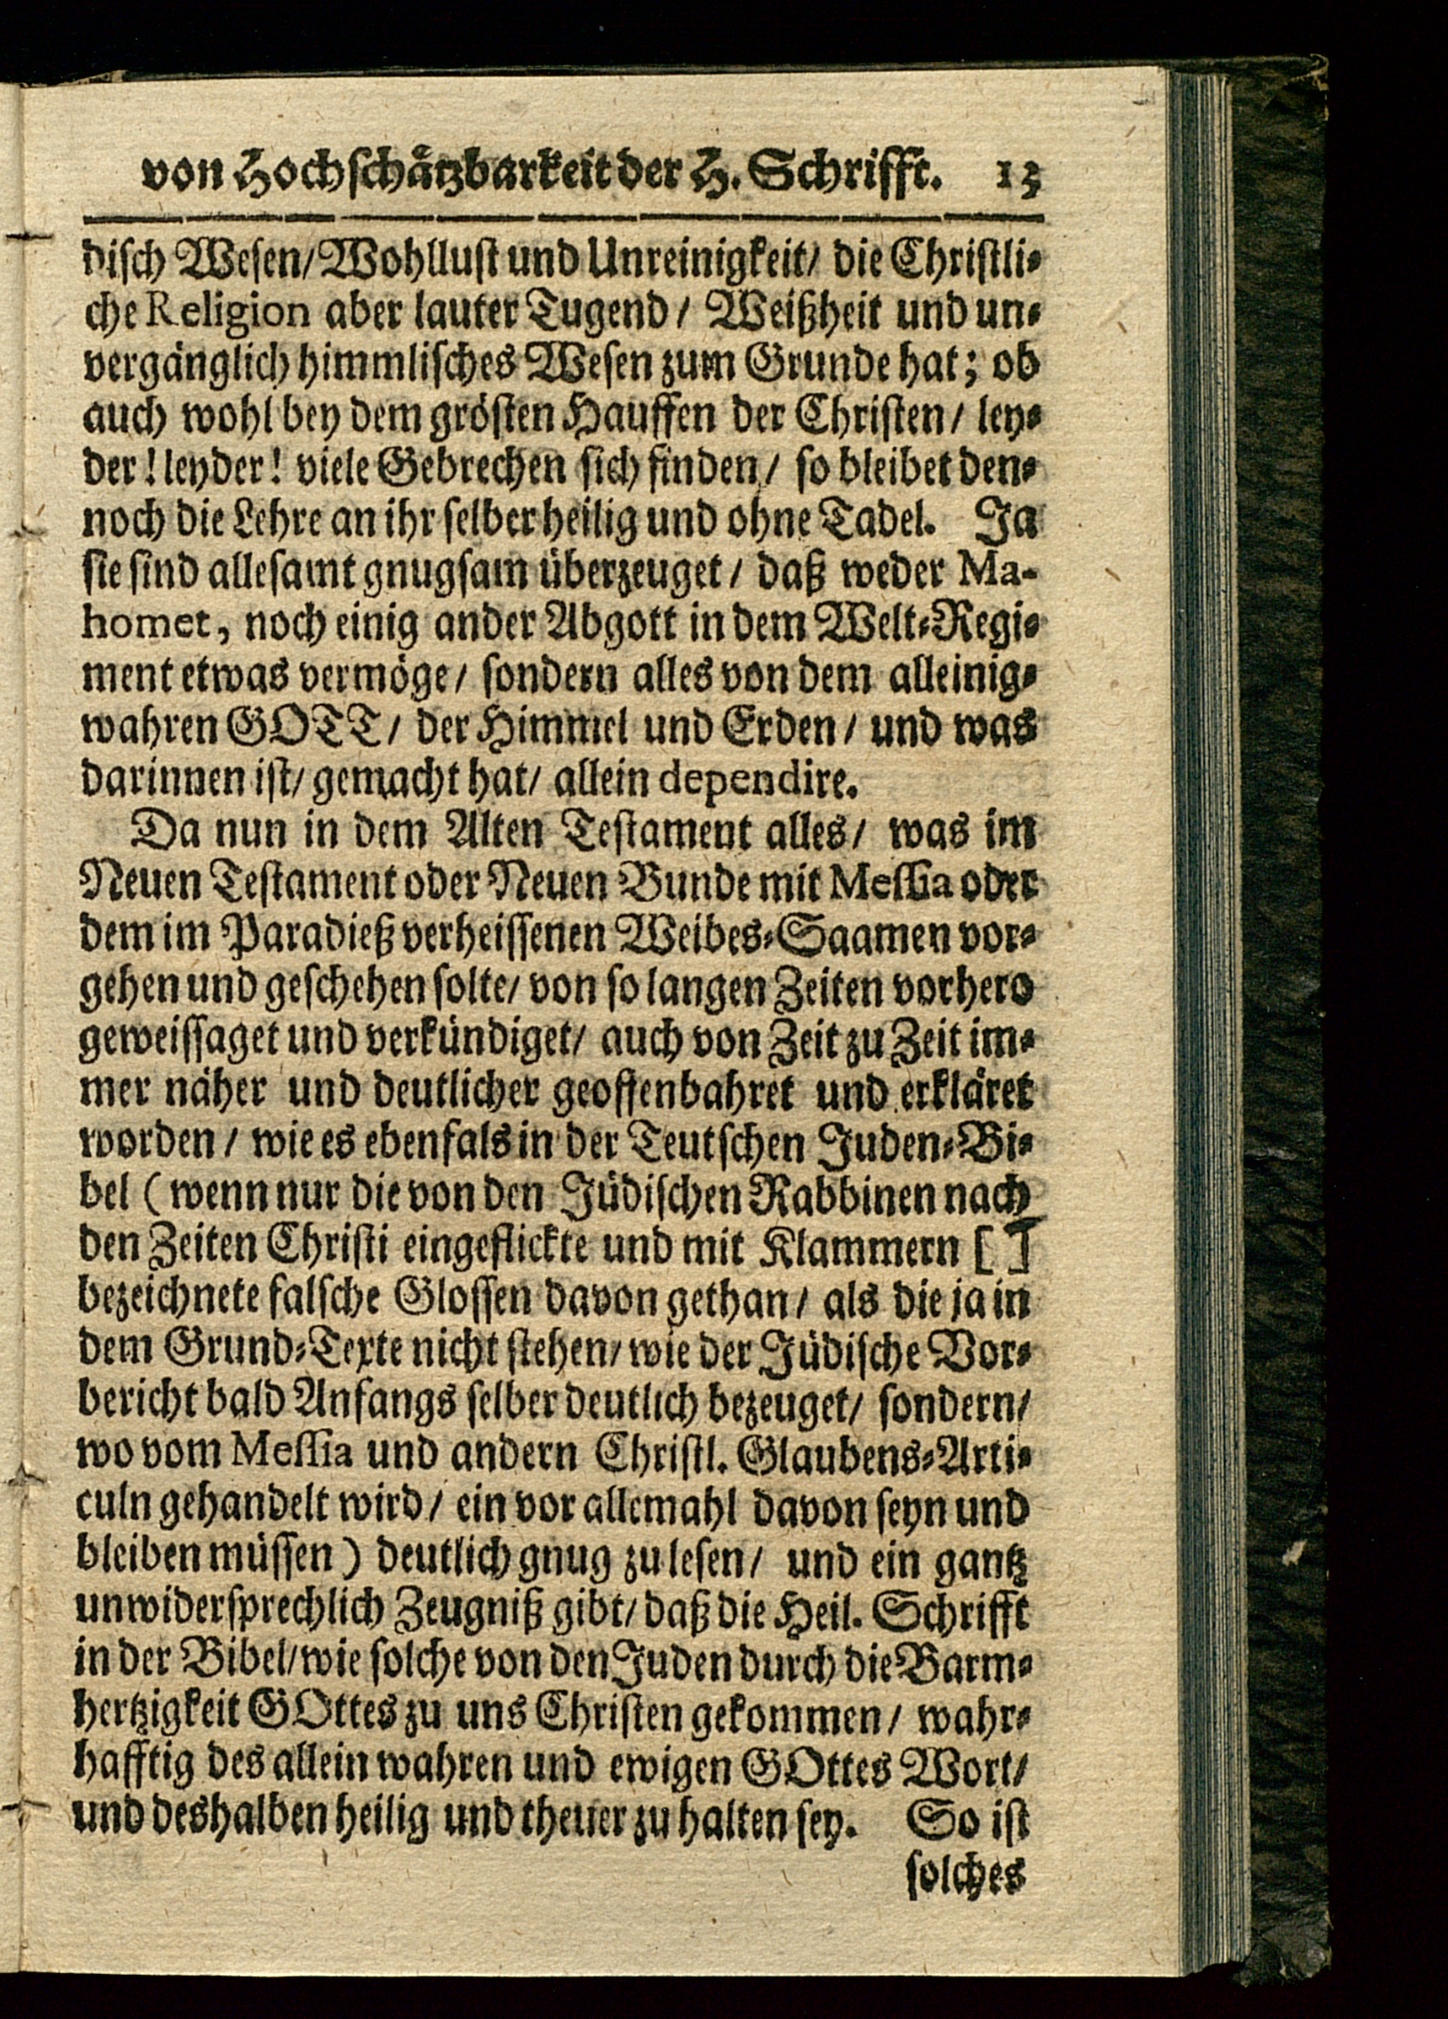 von Hochschätzbarkeit der H. Schrifft. 13
disch Wesen/ Wohllust und Unreinigkeit/ die Christli-
che Religion aber lauter Tugend/ Weißheit und un-
vergänglich himmlisches Wesen zum Grunde hat; ob
auch wohl bey dem grösten Hauffen der Christen/ ley-
der! leyder! viele Gebrechen sich finden/ so bleibet den-
noch die Lehre an ihr selber heilig und ohne Tadel. Ja
sie sind allesamt gnugsam überzeuget/ daß weder Ma-
homet, noch einig ander Abgott in dem Welt-Regi-
ment etwas vermöge/ sondern alles von dem alleinig-
wahren GOTT/ der Himmel und Erden/ und was
darinnen ist/ gemacht hat/ allein dependire.
Da nun in dem Alten Testament alles/ was im
Neuen Testament oder Neuen Bunde mit Messia oder
dem im Paradieß verheissenen Weibes-Saamen vor-
gehen und geschehen solte/ von so langen Zeiten vorhero
geweissaget und verkündiget/ auch von Zeit zu Zeit im-
mer näher und deutlicher geoffenbahret und erkläret
worden/ wie es ebenfals in der Teutschen Juden-Bi-
bel (wenn nur die von den Jüdischen Rabbinen nach
den Zeiten Christi eingeflickte und mit Klammern [ ]
bezeichnete falsche Glossen davon gethan/ als die ja in
dem Grund-Texte nicht stehen/ wie der Jüdische Vor-
bericht bald Anfangs selber deutlich bezeuget/ sondern/
wo vom Messia und andern Christl. Glaubens-Arti-
culn gehandelt wird/ ein vor allemahl davon seyn und
bleiben müssen) deutlich gnug zu lesen/ und ein gantz
unwidersprechlich Zeugniß gibt/ daß die Heil. Schrifft
in der Bibel/ wie solche von den Juden durch die Barm-
hertzigkeit GOttes zu uns Christen gekommen/ wahr-
hafftig des allein wahren und ewigen GOttes Wort/
und deshalben heilig und theuer zu halten sey. So ist
solches